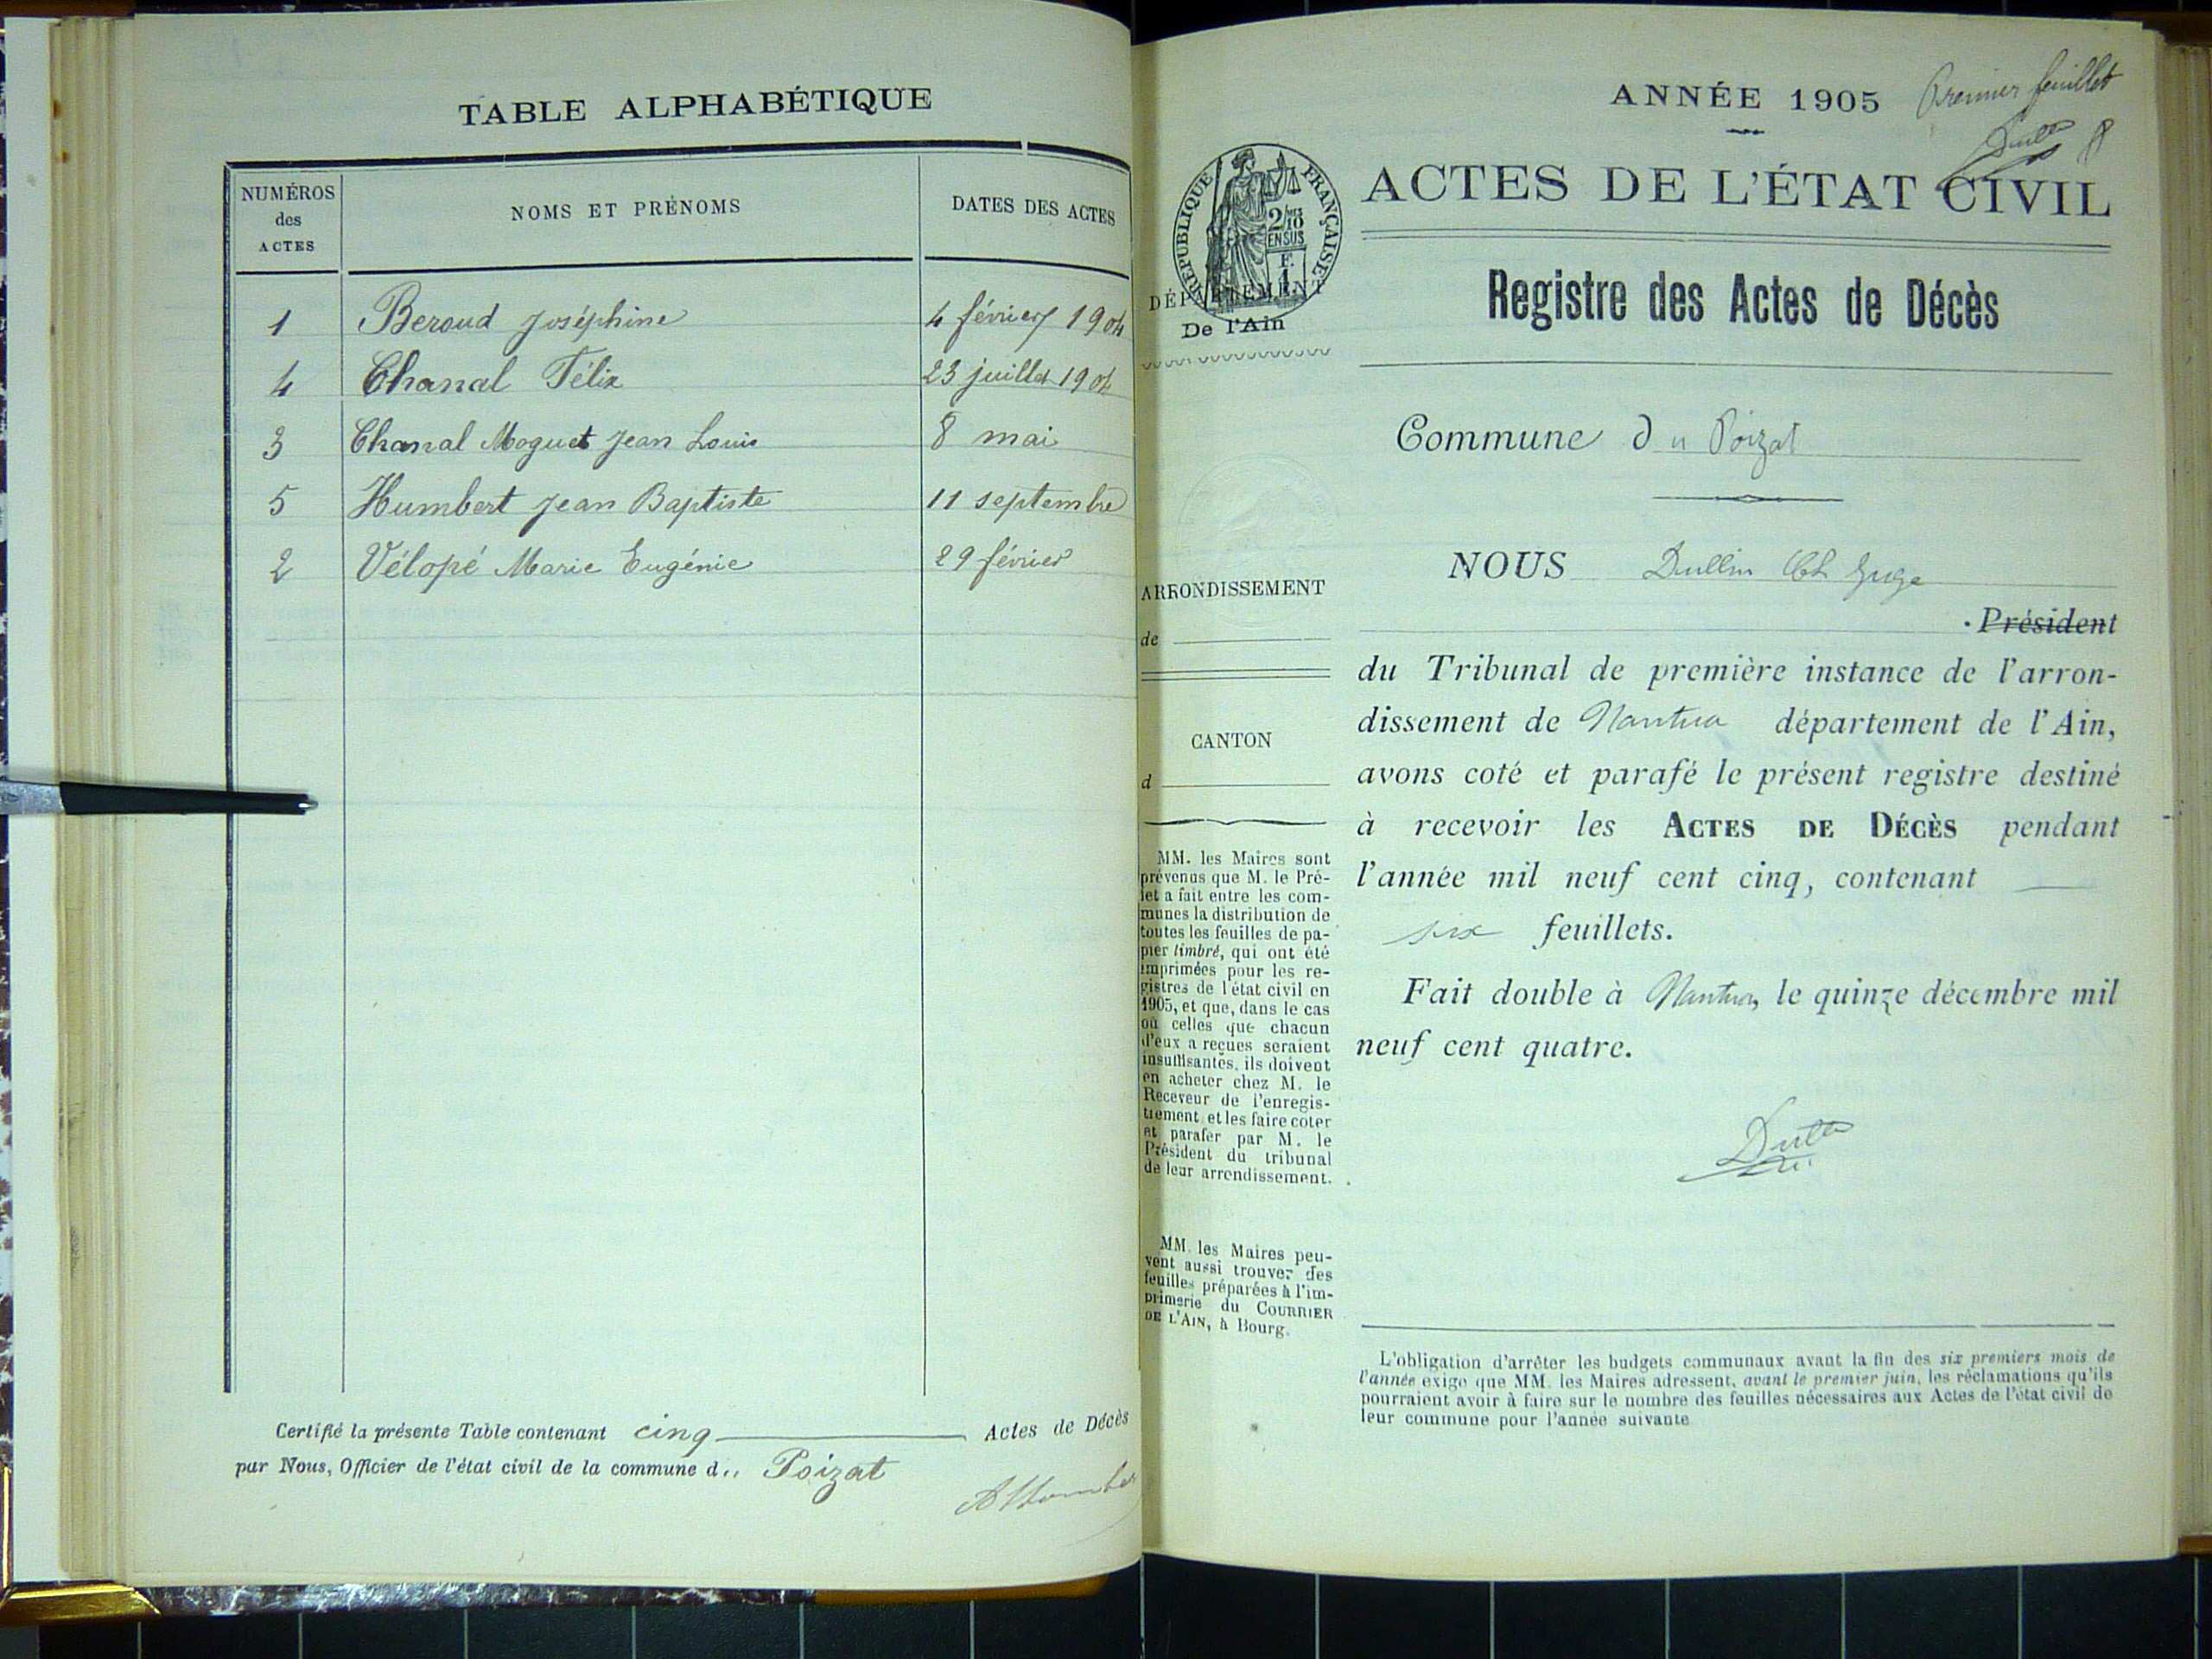 TABLE ALPHABÉTIQUE
NUMÉROS
des
ACTES
NOMS ET PRÉNOMS
DATES DES ACTES
1 Beroud Joséphine 4 février 1904
4 Chanal Félix 23 juillet 1904
3 Chanal Moguet Jean Louis 8 mai
5 Humbert Jean Baptiste 11 septembre
2 Vélopé Marie Eugénie 29 février
Certifié la présente Table contenant cinq Actes de Décès
par Nous, Officier de l'état civil de la commune du Poizat
ANNÉE 1905
Premier feuillet
ACTES DE L'ÉTAT CIVIL
RÉPUBLIQUE FRANÇAISE
2/10
EN SUS
F.
1
DÉPARTEMENT
De l'Ain
Registre des Actes de Décès
Commune du Poizat
ARRONDISSEMENT
de
CANTON
d
MM. les Maires sont
prévenus que M. le Pré-
fet a fait entre les com-
munes la distribution de
toutes les feuilles de pa-
pier timbré, qui ont été
imprimées pour les re-
gistres de l'état civil en
1905, et que, dans le cas
où celles que chacun
d'eux a reçues seraient
insuffisantes, ils doivent
en acheter chez M. le
Receveur de l'enregis-
trement et les faire coter
et parafer par M. le
Président du tribunal
de leur arrondissement.
MM. les Maires peu-
vent aussi trouver des
feuilles préparées à l'im-
primerie du COURRIER
DE L'AIN, à Bourg.
NOUS Dullin Ch Juge
Président
du Tribunal de première instance de l'arron-
dissement de Nantua département de l'Ain,
avons coté et parafé le présent registre destiné
à recevoir les ACTES DE DÉCÈS pendant
l'année mil neuf cent cinq, contenant
six feuillets.
Fait double à Nantua, le quinze décembre mil
neuf cent quatre.
L'obligation d'arrêter les budgets communaux avant la fin des six premiers mois de
l'année exige que MM. les Maires adressent, avant le premier juin, les réclamations qu'ils
pourraient avoir à faire sur le nombre des feuilles nécessaires aux Actes de l'état civil de
leur commune pour l'année suivante